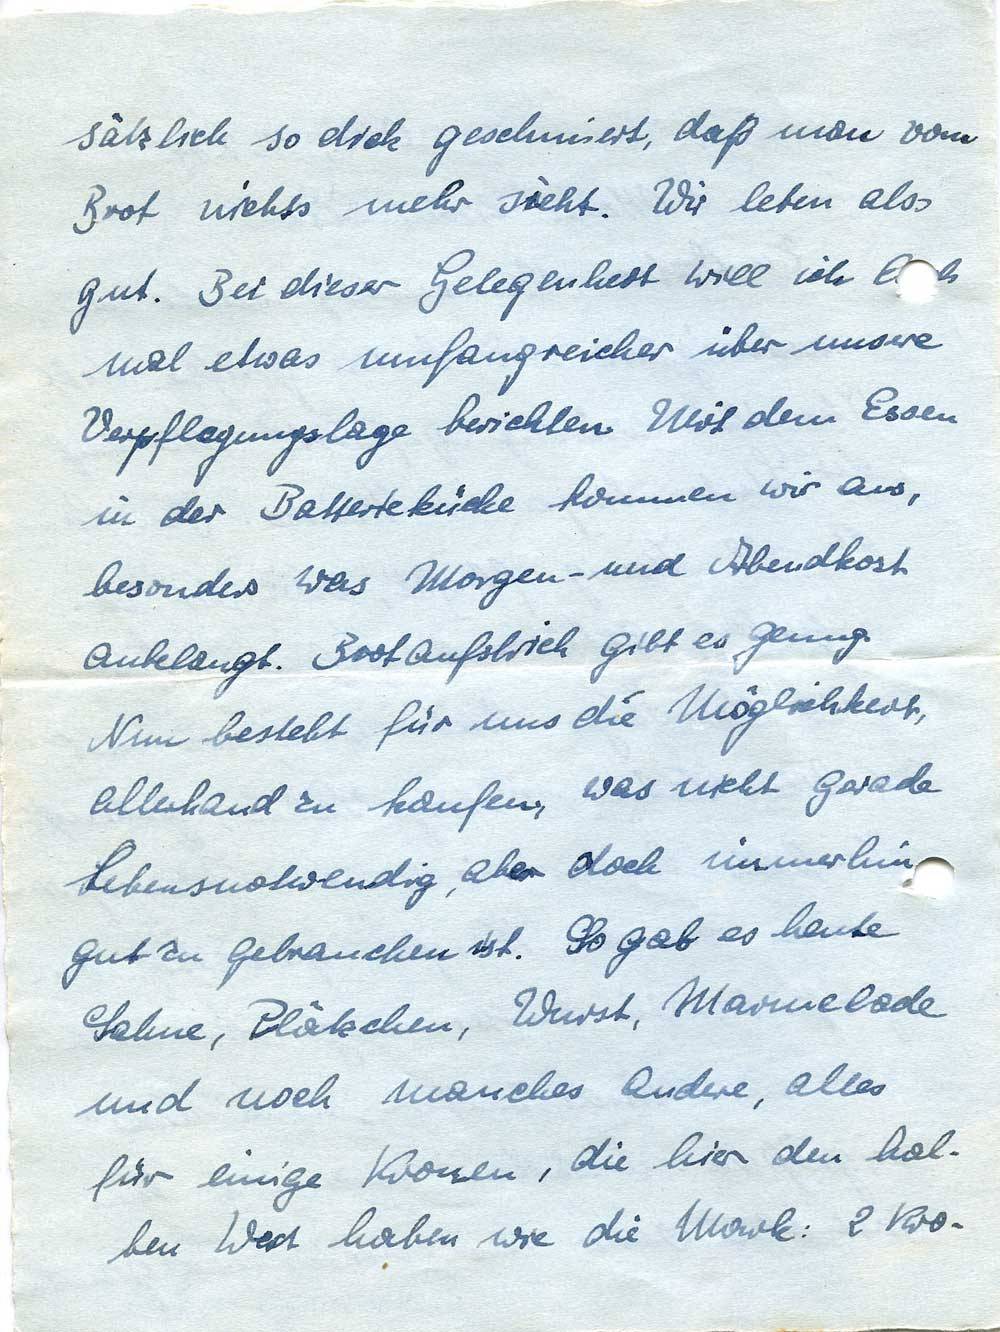 sätzlich so dick geschmiert, daß man vom
Brot nichts mehr sieht. Wir leben also
gut. Bei dieser Gelegenheit will ich
mal etwas umfangreicher über unsere
Verpflegungslage berichten. Mit dem Essen
in der Batterieküche kommen wir aus,
besonders was Morgen- und Abendkost
anbelangt. Brotaufstrich gibt es genug.
Nun besteht für uns die Möglichkeit,
allerhand zu kaufen, was nicht gerade
lebensnotwendig, aber doch immerhin
gut zu gebrauchen ist. So gab es heute
Sahne, Plätzchen, Wurst, Marmelade
und noch manches andere, alles
für einige Kronen, die hier den hal-
ben Wert haben wie die Mark: 2 Kro-